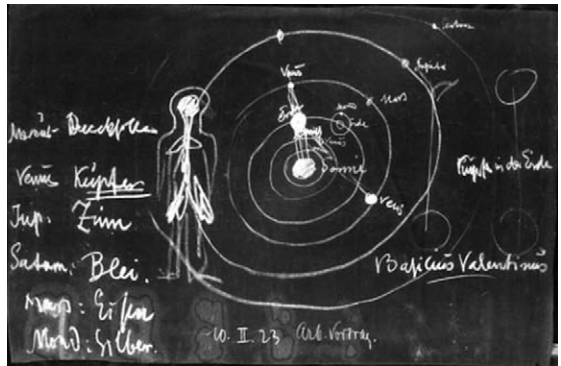 Saturn
Jupiter
Venus
Mars
Erde
Mond
Erde
Venus
Sonne
Venus
Venus Kupfer
Jup. Zinn
Saturn: Blei.
Mars: Eisen
Mond: Silber.
Kupfer in der Erde
Basilius Valentinus
10. II. 23 Arb. Vortrag.